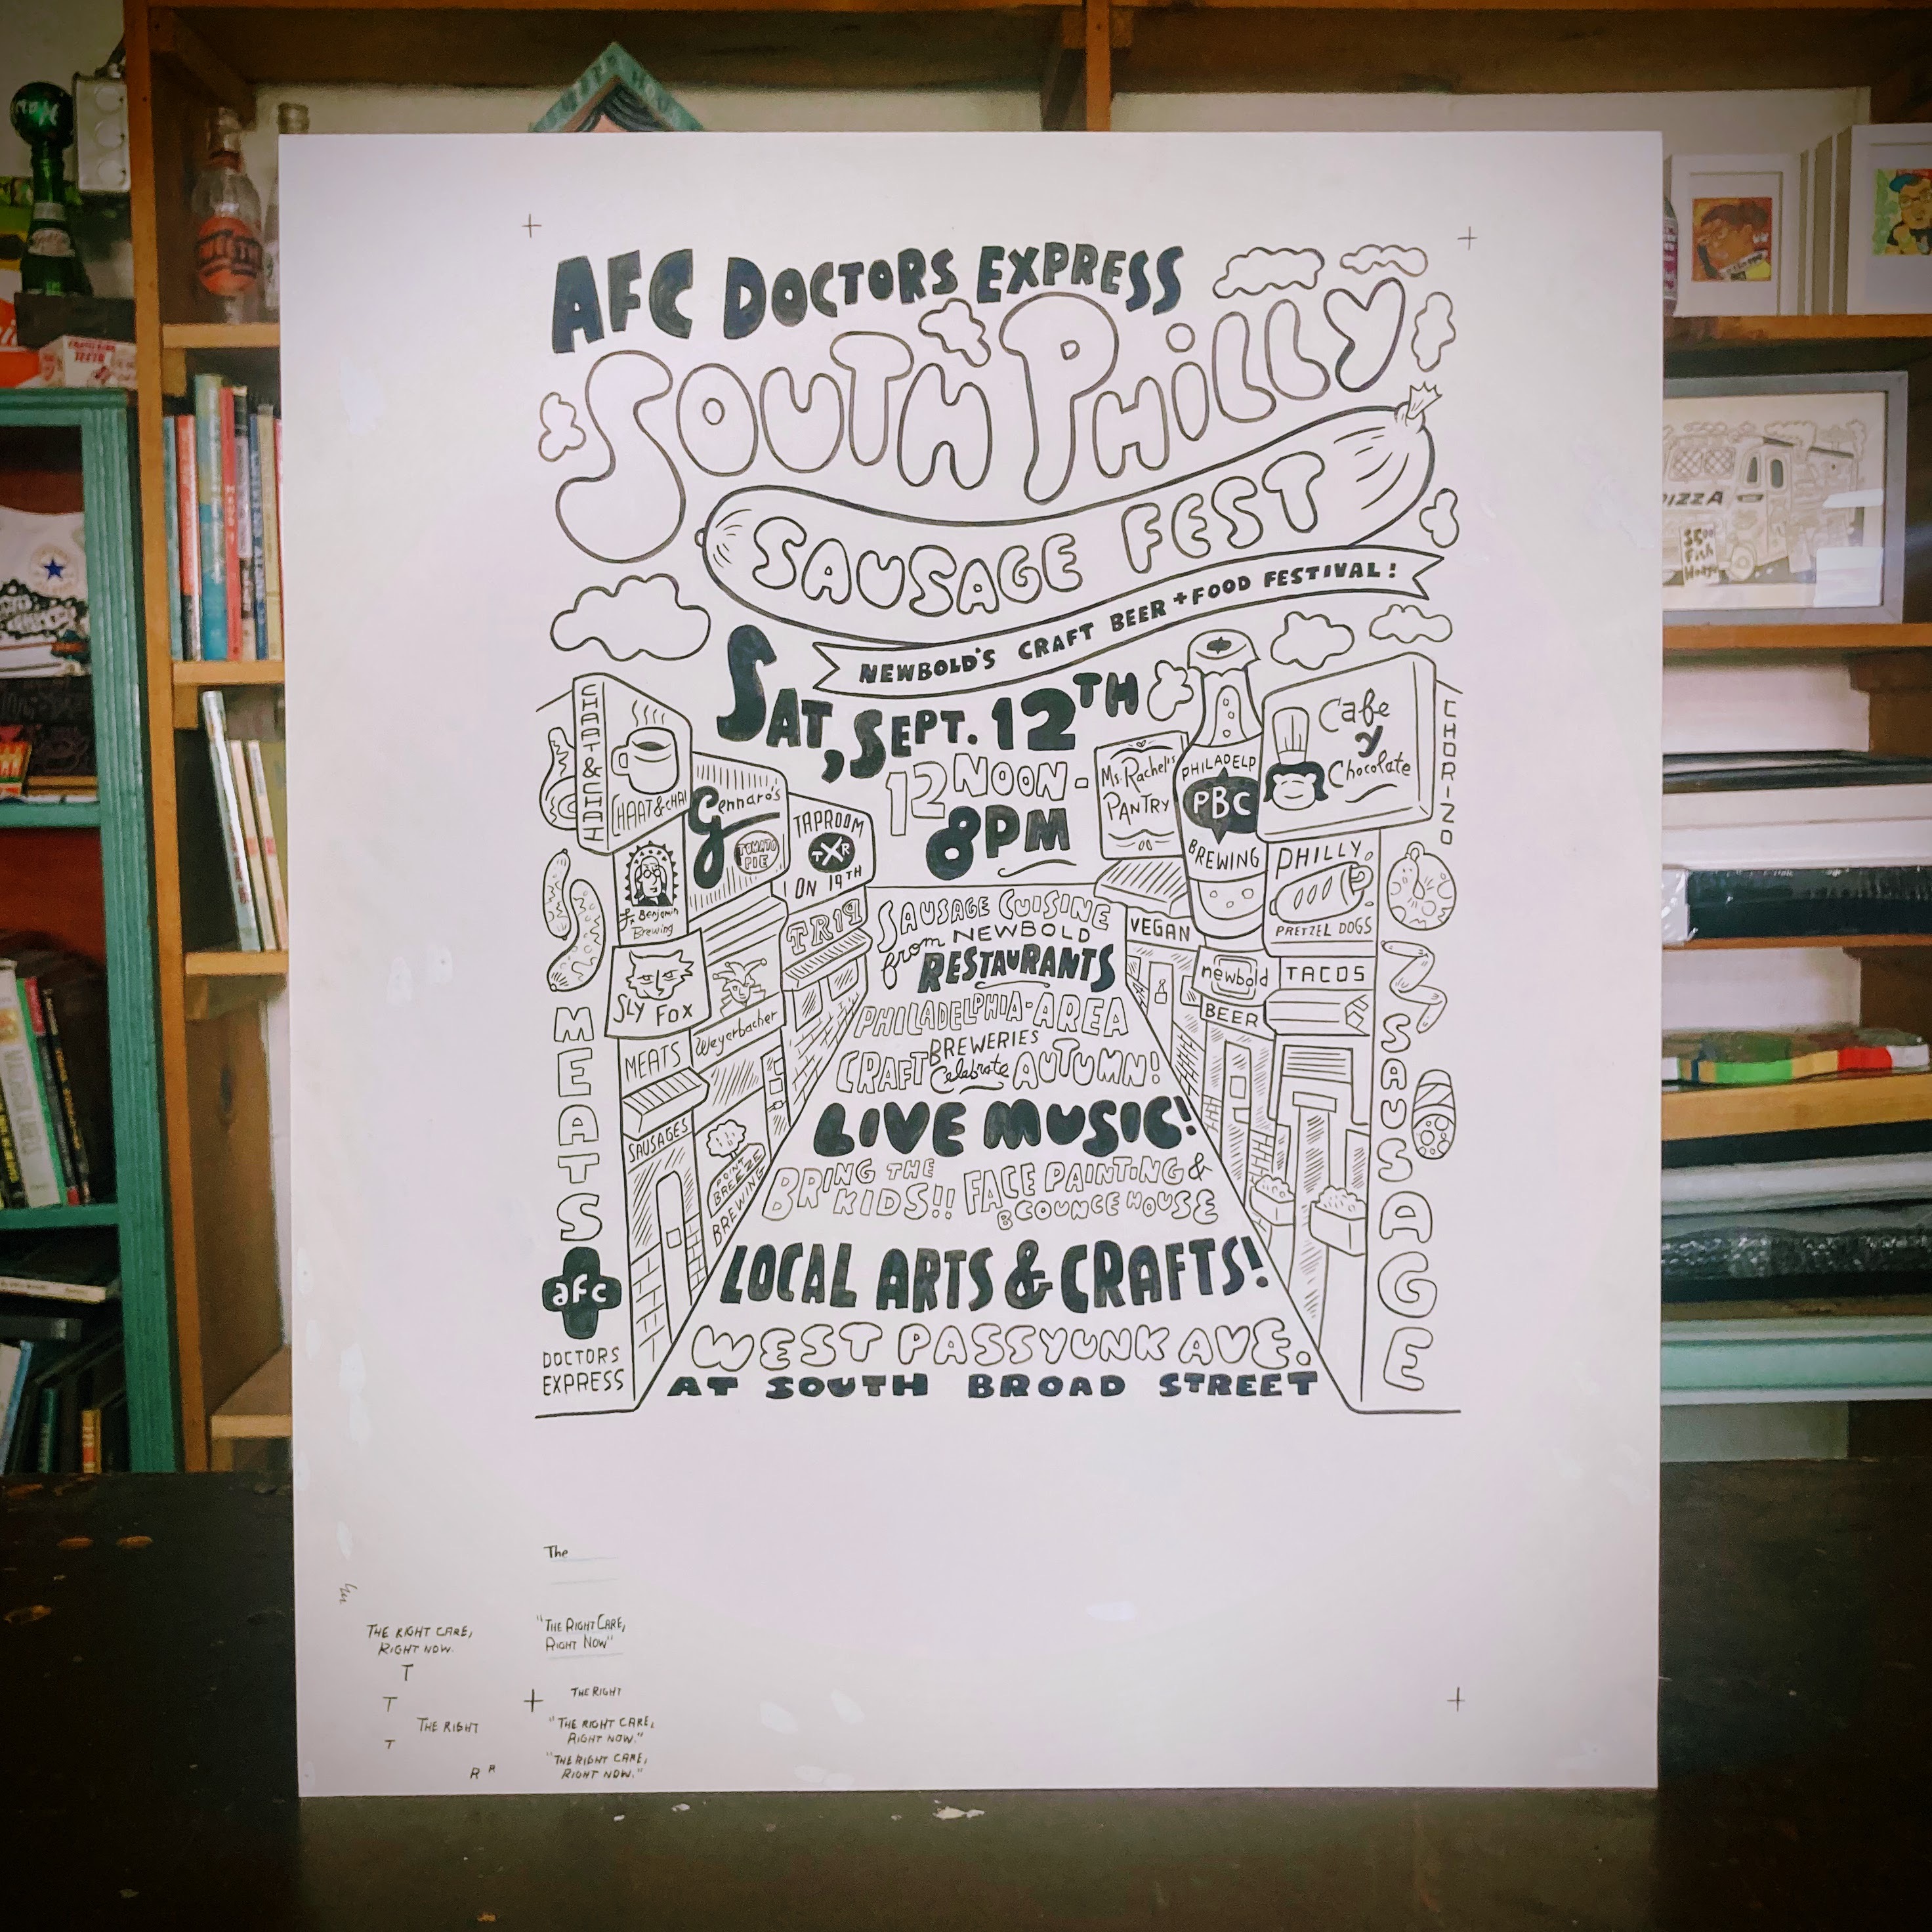 AFC DOCTORS EXPRESS
SOUTH PHILLY
SAUSAGE FEST
NEWBOLD'S CRAFT BEER + FOOD FESTIVAL!
SAT, SEPT. 12TH
12 NOON-
8PM
CHAAT & CHAI
CHAAT & CHAI
Gennaro's
TOMATO
PIE
TAPROOM
TXR
ON 19TH
TR19
St. Benjamin
Brewing
SLY FOX
Weyerbacher
MEATS
SAUSAGES
POINT
BREEZE
BREWING
MEATS
afc
DOCTORS
EXPRESS
Ms. Rachel's
PANTRY
PHILADELP
PBC
BREWING
Cafe
y
Chocolate
PHILLY
PRETZEL DOGS
VEGAN
newbold
TACOS
BEER
CHORIZO
SAUSAGE
SAUSAGE CUISINE
from NEWBOLD
RESTAURANTS
PHILADELPHIA-AREA
CRAFT BREWERIES
Celebrate AUTUMN!
LIVE MUSIC!
BRING THE KIDS!! FACE PAINTING &
BCOUNCE HOUSE
LOCAL ARTS & CRAFTS!
WEST PASSYUNK AVE.
AT SOUTH BROAD STREET
The
"THE RIGHT CARE,
RIGHT NOW"
THE RIGHT CARE,
RIGHT NOW.
T
T
THE RIGHT
T
R R
THE RIGHT
"THE RIGHT CARE,
RIGHT NOW."
"THE RIGHT CARE,
RIGHT NOW."
PIZZA